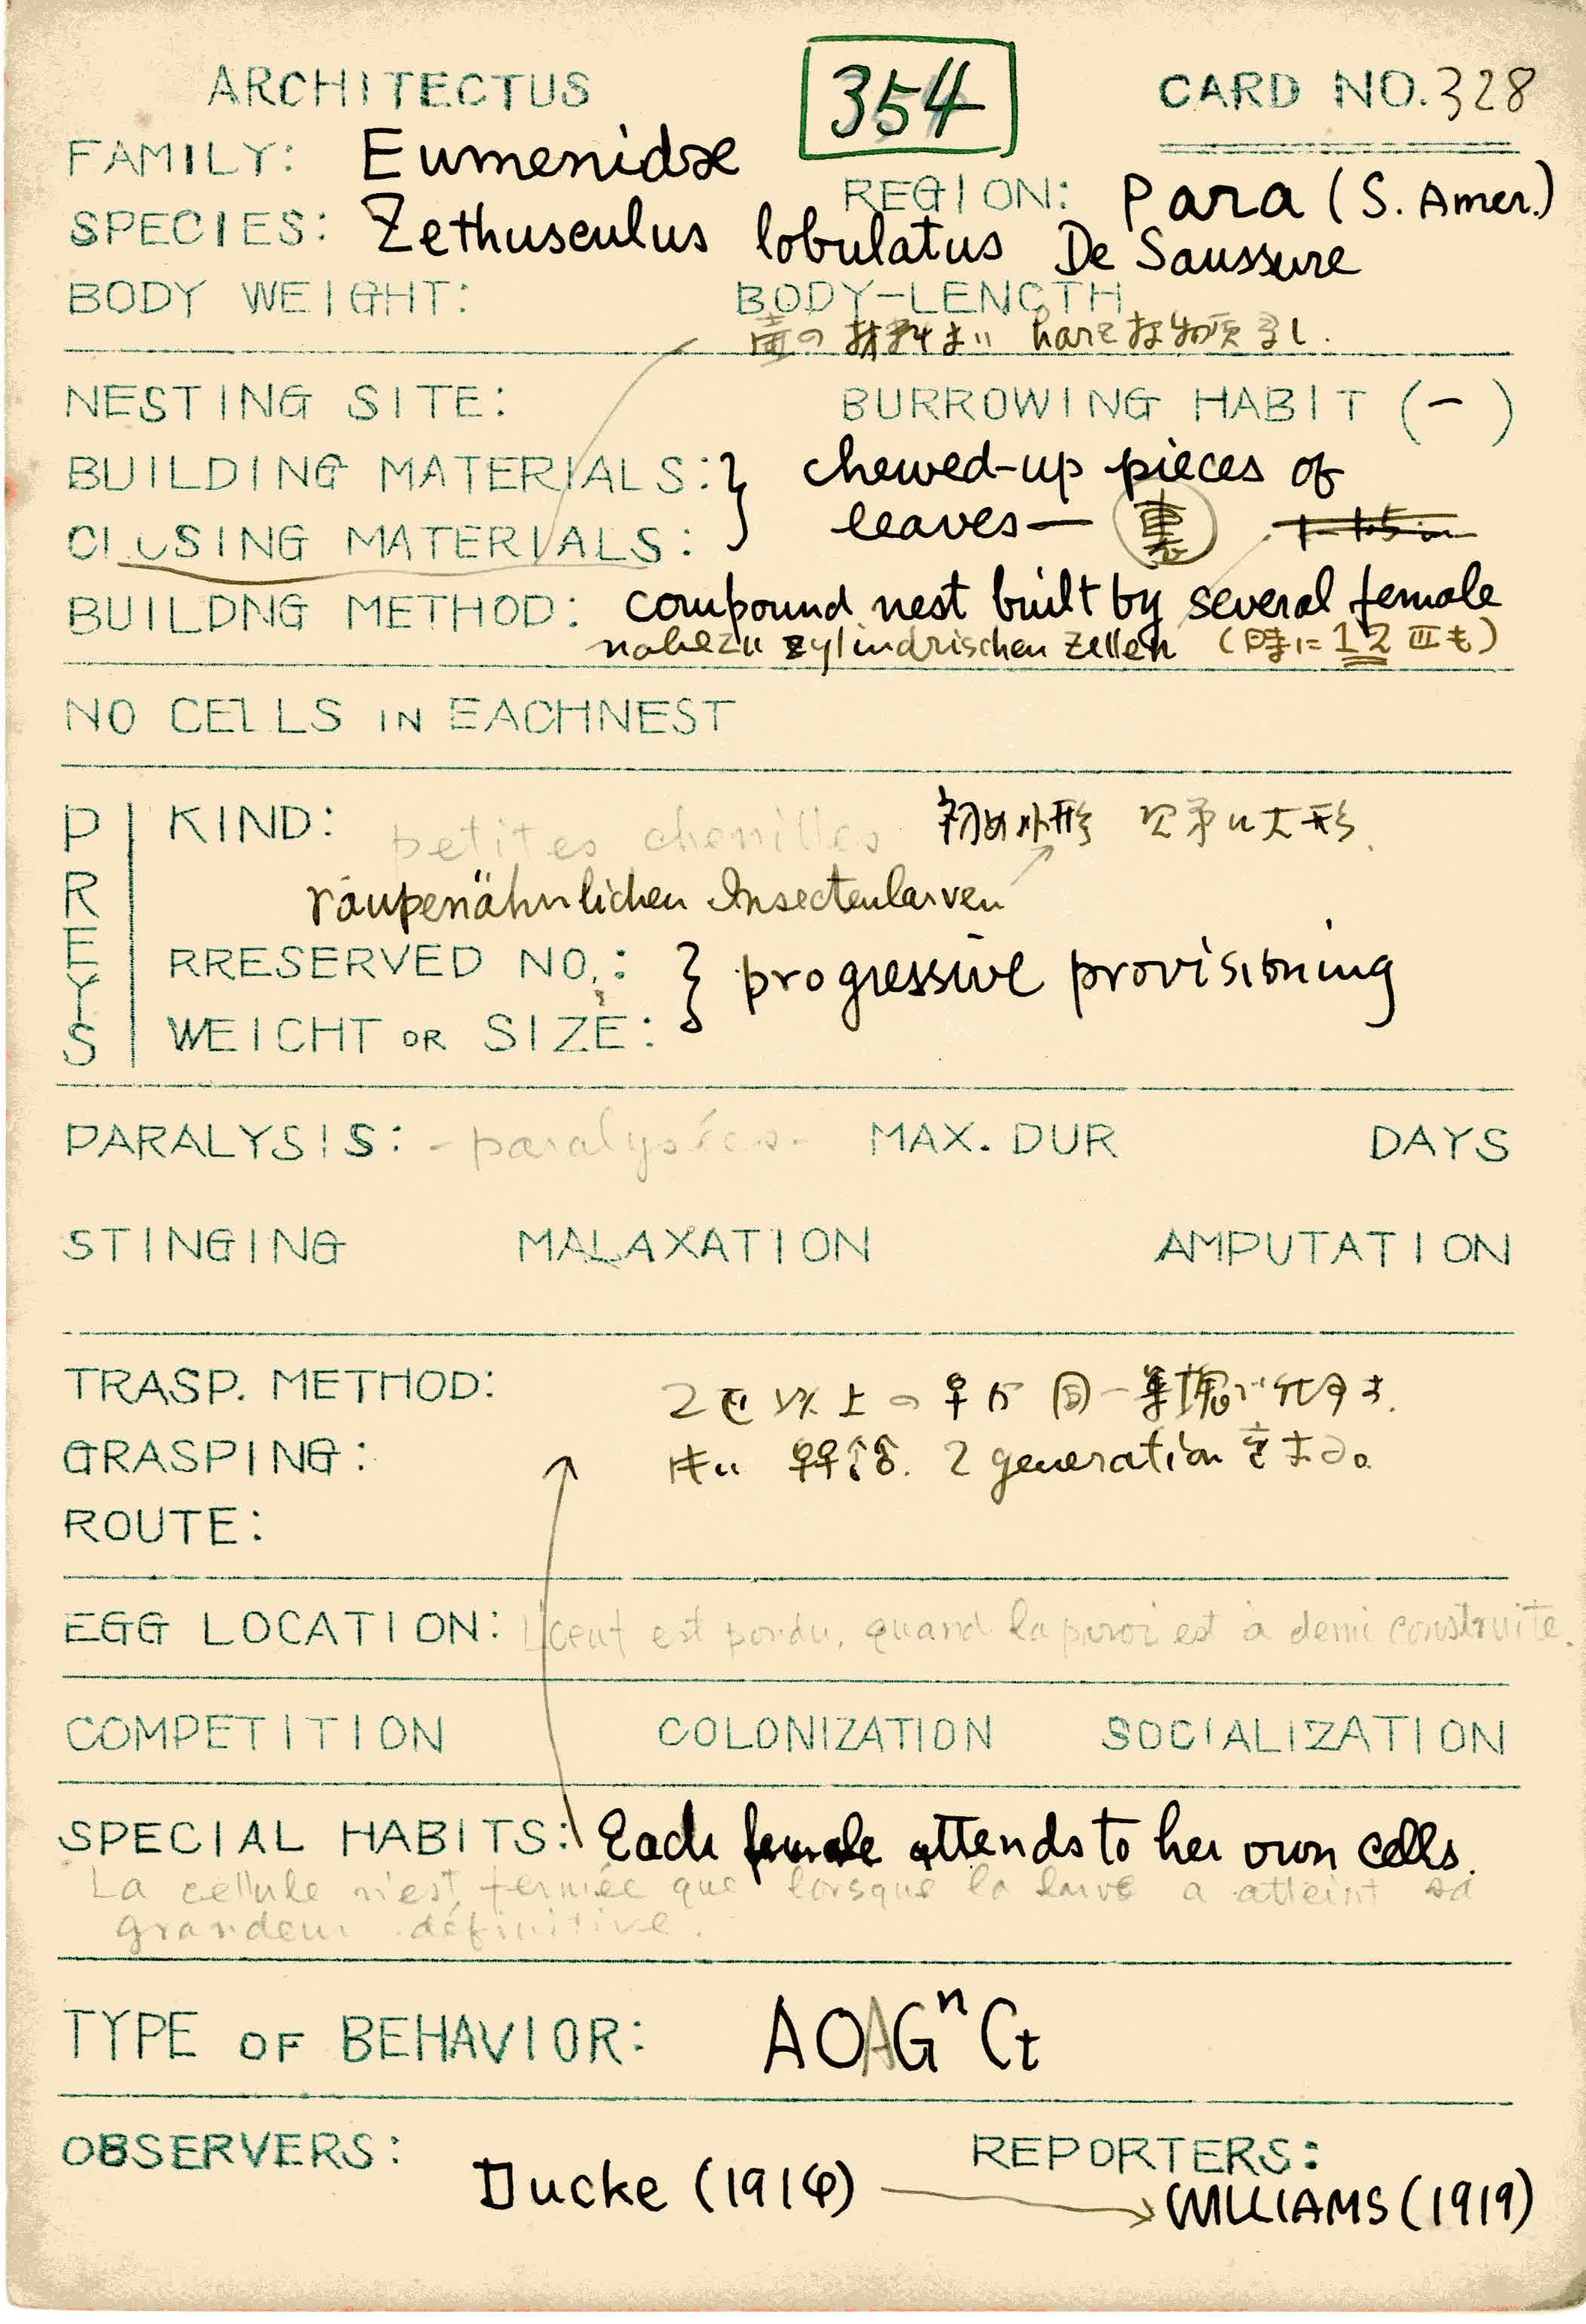 ARCHITECTUS
354
CARD NO. 328
FAMILY: Eumenidae
REGION: Para (S. Amer.)
SPECIES: Zethusculus lobulatus De Saussure
BODY WEIGHT: BODY-LENGTH
壺の
NESTING SITE: BURROWING HABIT (-)
BUILDING MATERIALS: } chewed-up pieces of
CLOSING MATERIALS: leaves— 裏
BUILDNG METHOD: compound nest built by several female
nahezu zylindrischen Zellen (時に12匹も)
NO CELLS IN EACHNEST
PREYS
KIND: petites chenilles 初め小形 次第に大形.
raupenähnlichen Insectenlarven
RRESERVED NO.: } progressive provisioning
WEIGHT OR SIZE:
PARALYSIS: - paralysées - MAX. DUR DAYS
STINGING MALAXATION AMPUTATION
TRASP. METHOD: 2匹以上の♀が同一巣
GRASPING: 2 generation
ROUTE:
EGG LOCATION: L'oeuf est pondu, quand la paroi est à demi construite.
COMPETITION COLONIZATION SOCIALIZATION
SPECIAL HABITS: Each female attends to her own cells.
La cellule n'est fermée que lorsque la larve a atteint sa
grandeur définitive.
TYPE OF BEHAVIOR: AOAGⁿCt
OBSERVERS: REPORTERS:
Ducke (1914) → WILLIAMS (1919)